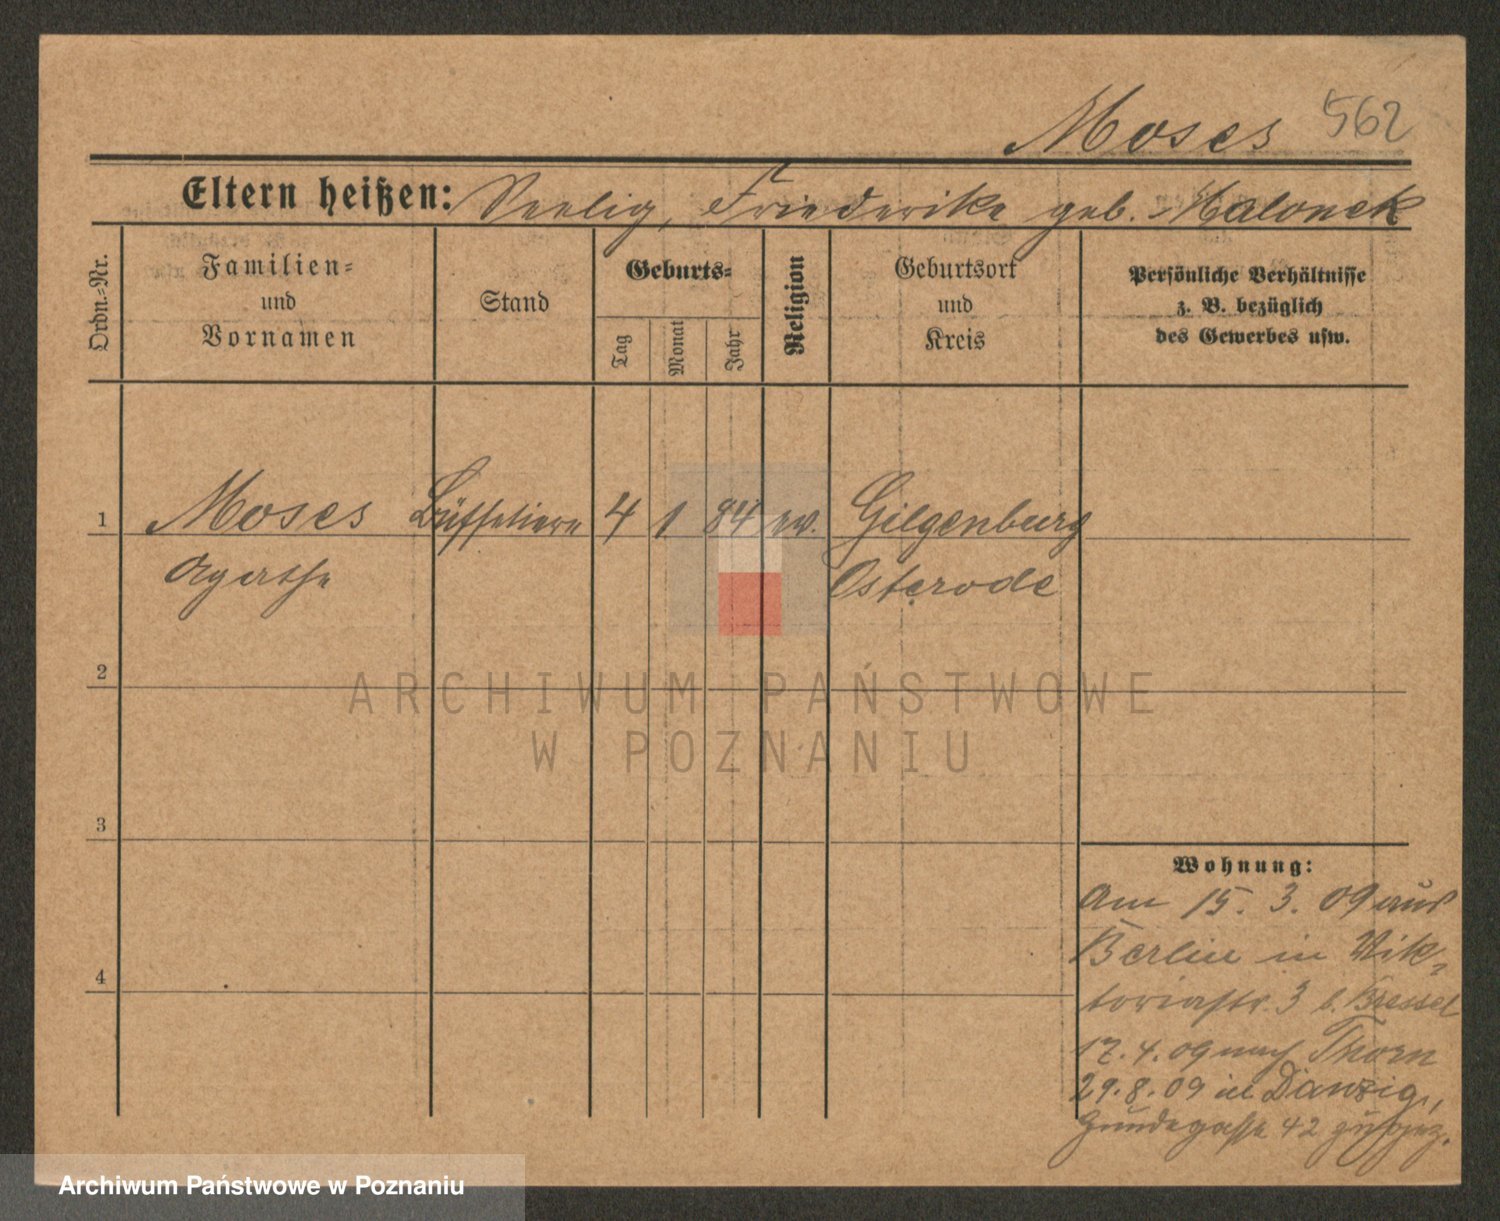 Moses 562
Eltern heißen: Seelig, Friederike geb. Malonek
Ordn.-Nr.
Familien-
und
Vornamen
Stand
Geburts-
Tag
Monat
Jahr
Religion
Geburtsort
und
Kreis
Persönliche Verhältnisse
z. B. bezüglich
des Gewerbes usw.
1 Moses Büffetiere 4 1 84 ev. Gilgenburg
Agathe Osterode
2
3
4
Wohnung:
Am 15. 3. 09 aus
Berlin in Vik-
toriastr. 3 b. Bressel
17. 4. 09 nach Thorn
29. 8. 09 in Danzig,
Hundegasse 42
ARCHIWUM PAŃSTWOWE
W POZNANIU
Archiwum Państwowe w Poznaniu